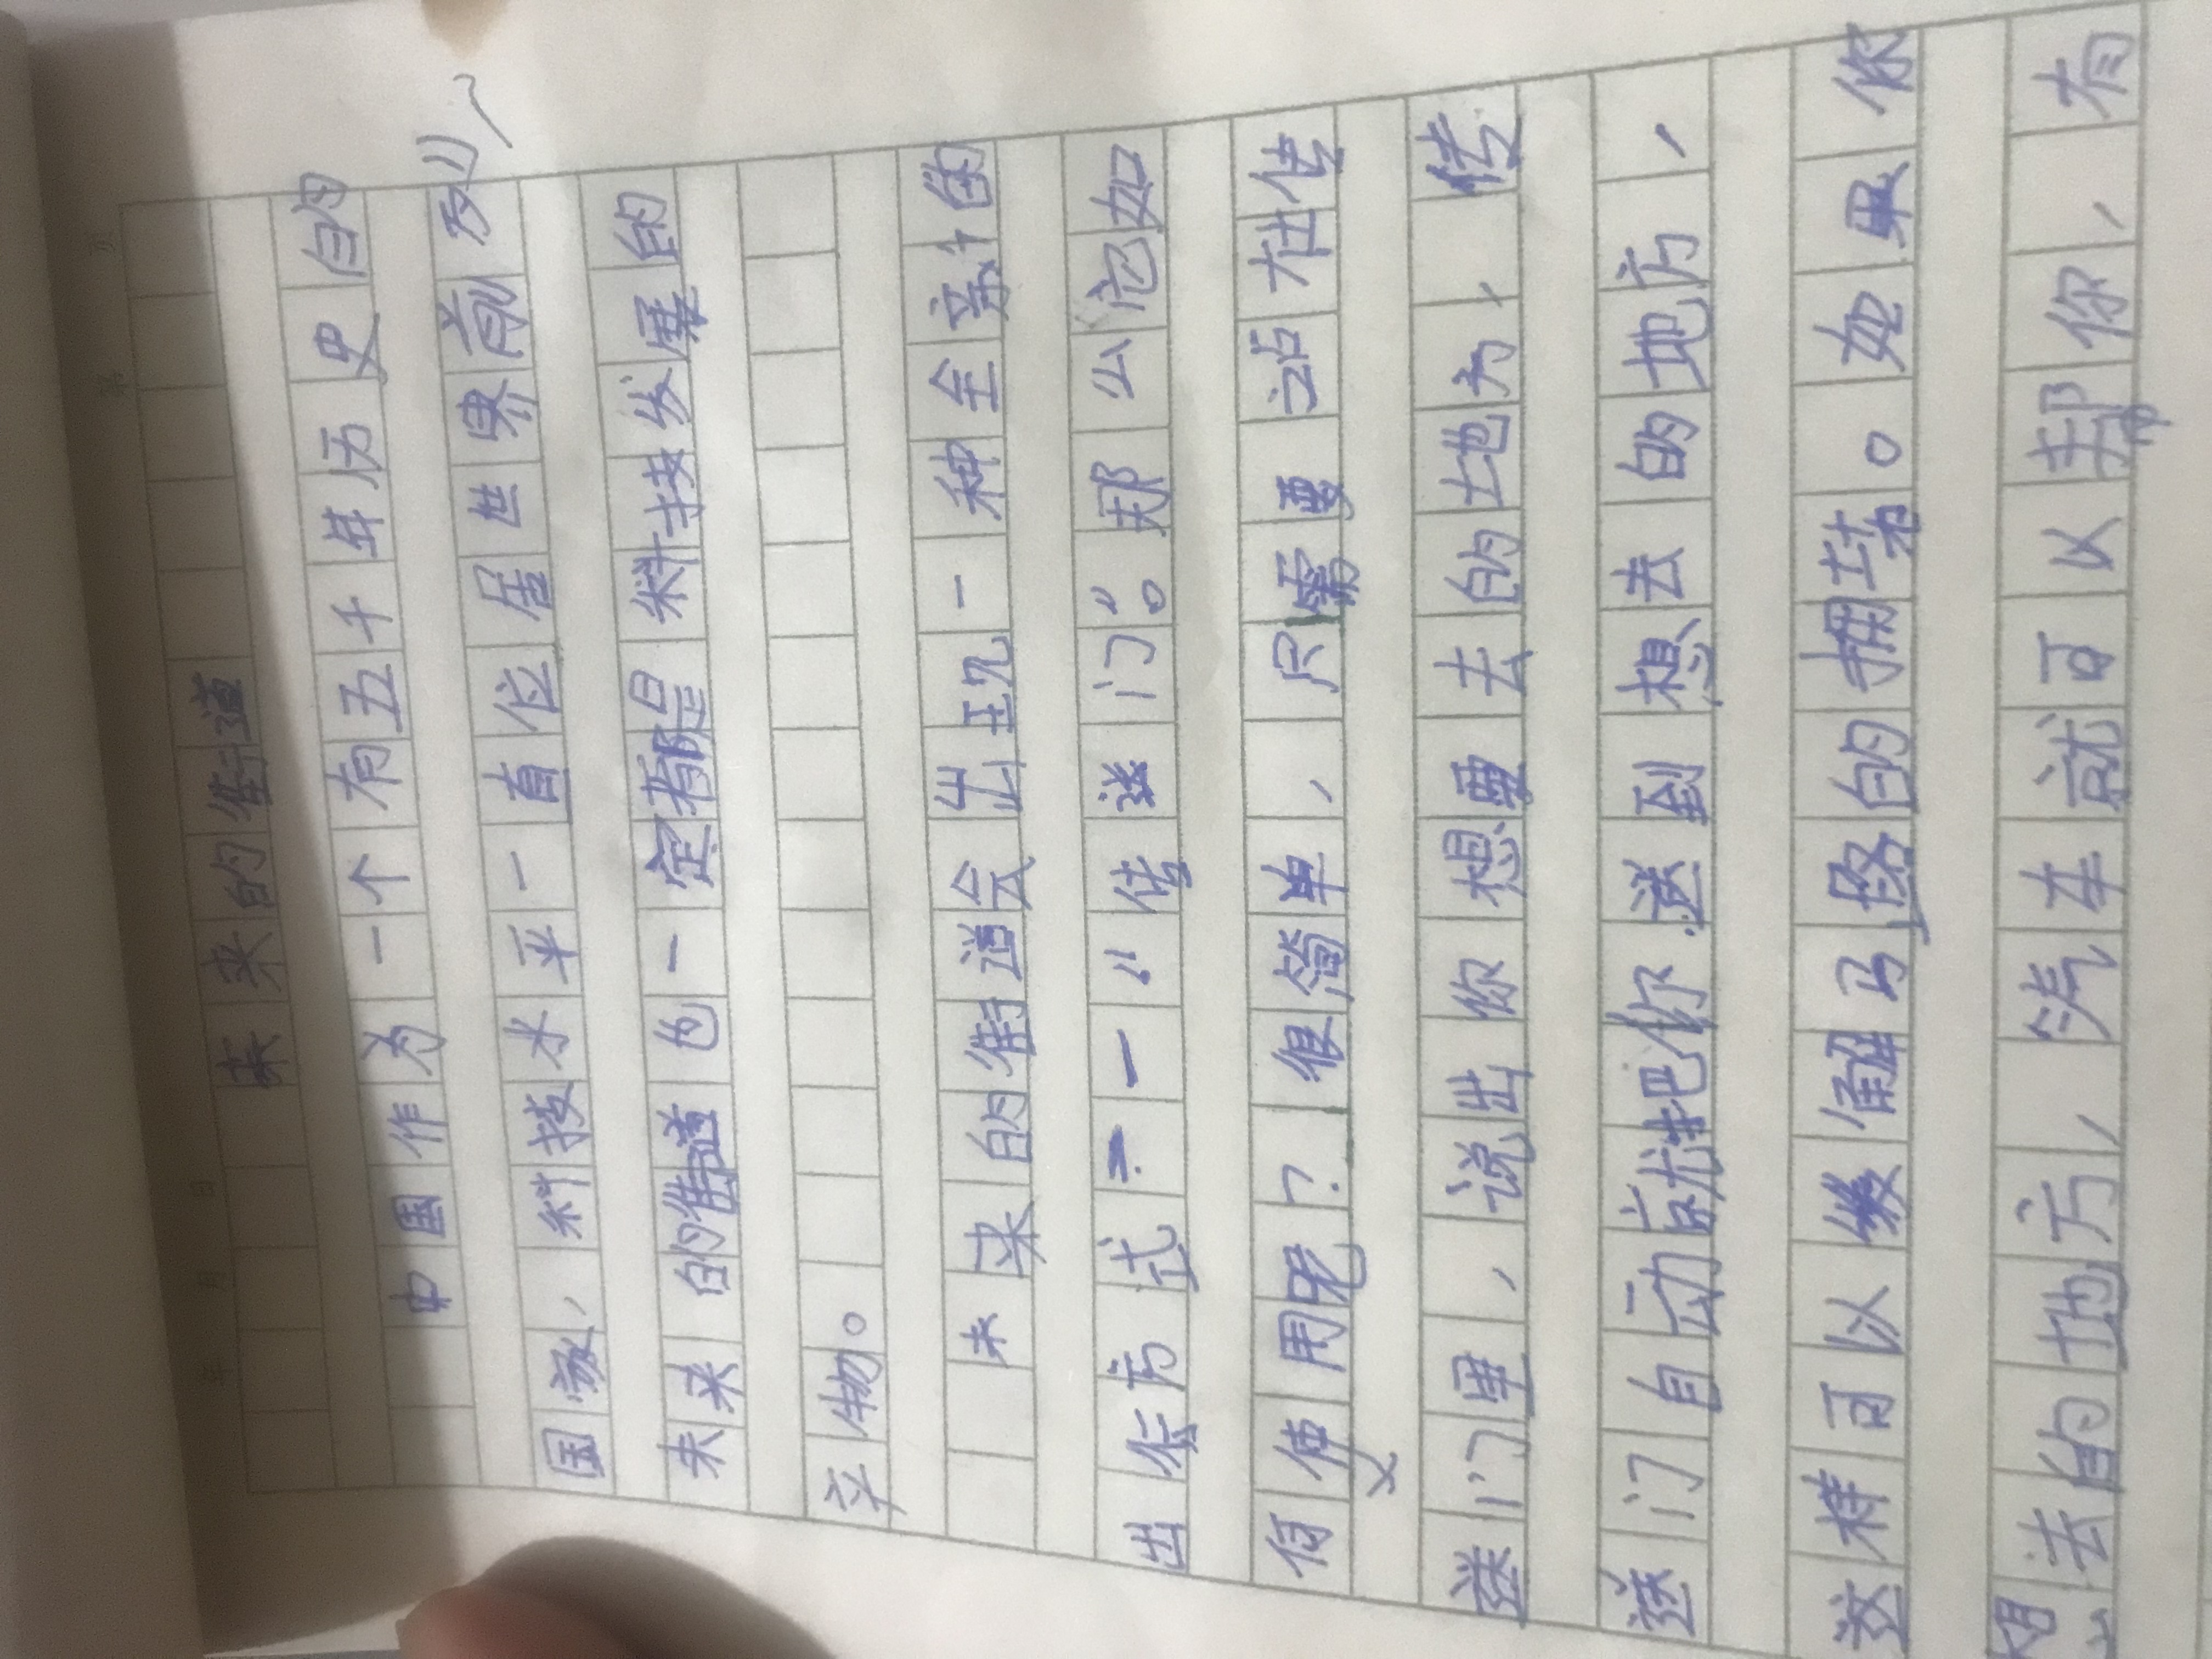 年 月 日 第 页
未来的街道
中国作为一个有五千年历史的
国家，科技水平一直位居世界前列，
未来的街道也一定都是科技发展的
产物。
未来的街道会出现一种全新的
出行方式——“传送门”。那么它如
何使用呢？很简单，只需要站在传
送门里，说出你想要去的地方，传
送门自动就把你送到想去的地方，
这样可以缓解马路的拥堵。如果你
想去的地方，汽车就可以帮你，有